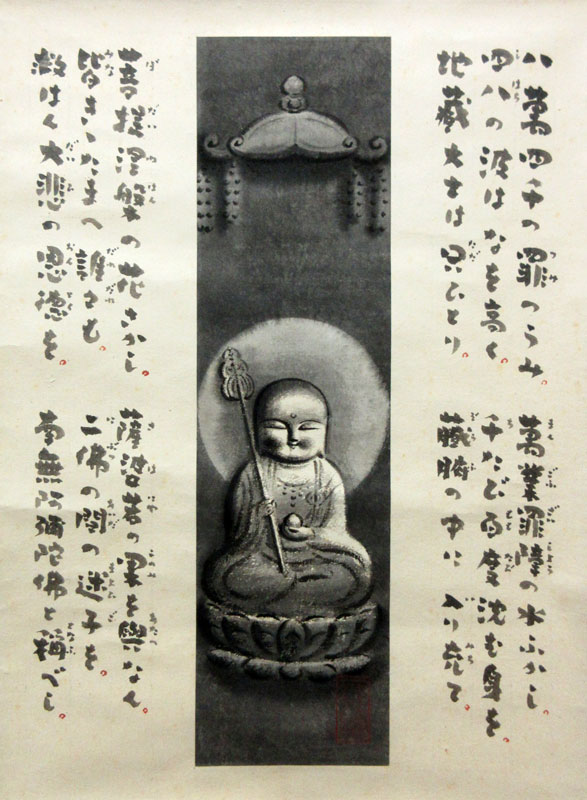 八萬四千の罪のうみ。 萬業罪障の水ふかし。
四八の波はなを高く。 千たび百度沈む身を。
地藏大士は只ひとり。 臓腑の中に入り充て。
菩提涅槃の花さかし。 薩婆若の果を與なん。
皆きゝたまへ誰〻も。 二佛の間の迷子を。
救はん大悲の恩德を。 南無阿彌陀佛と稱べし。